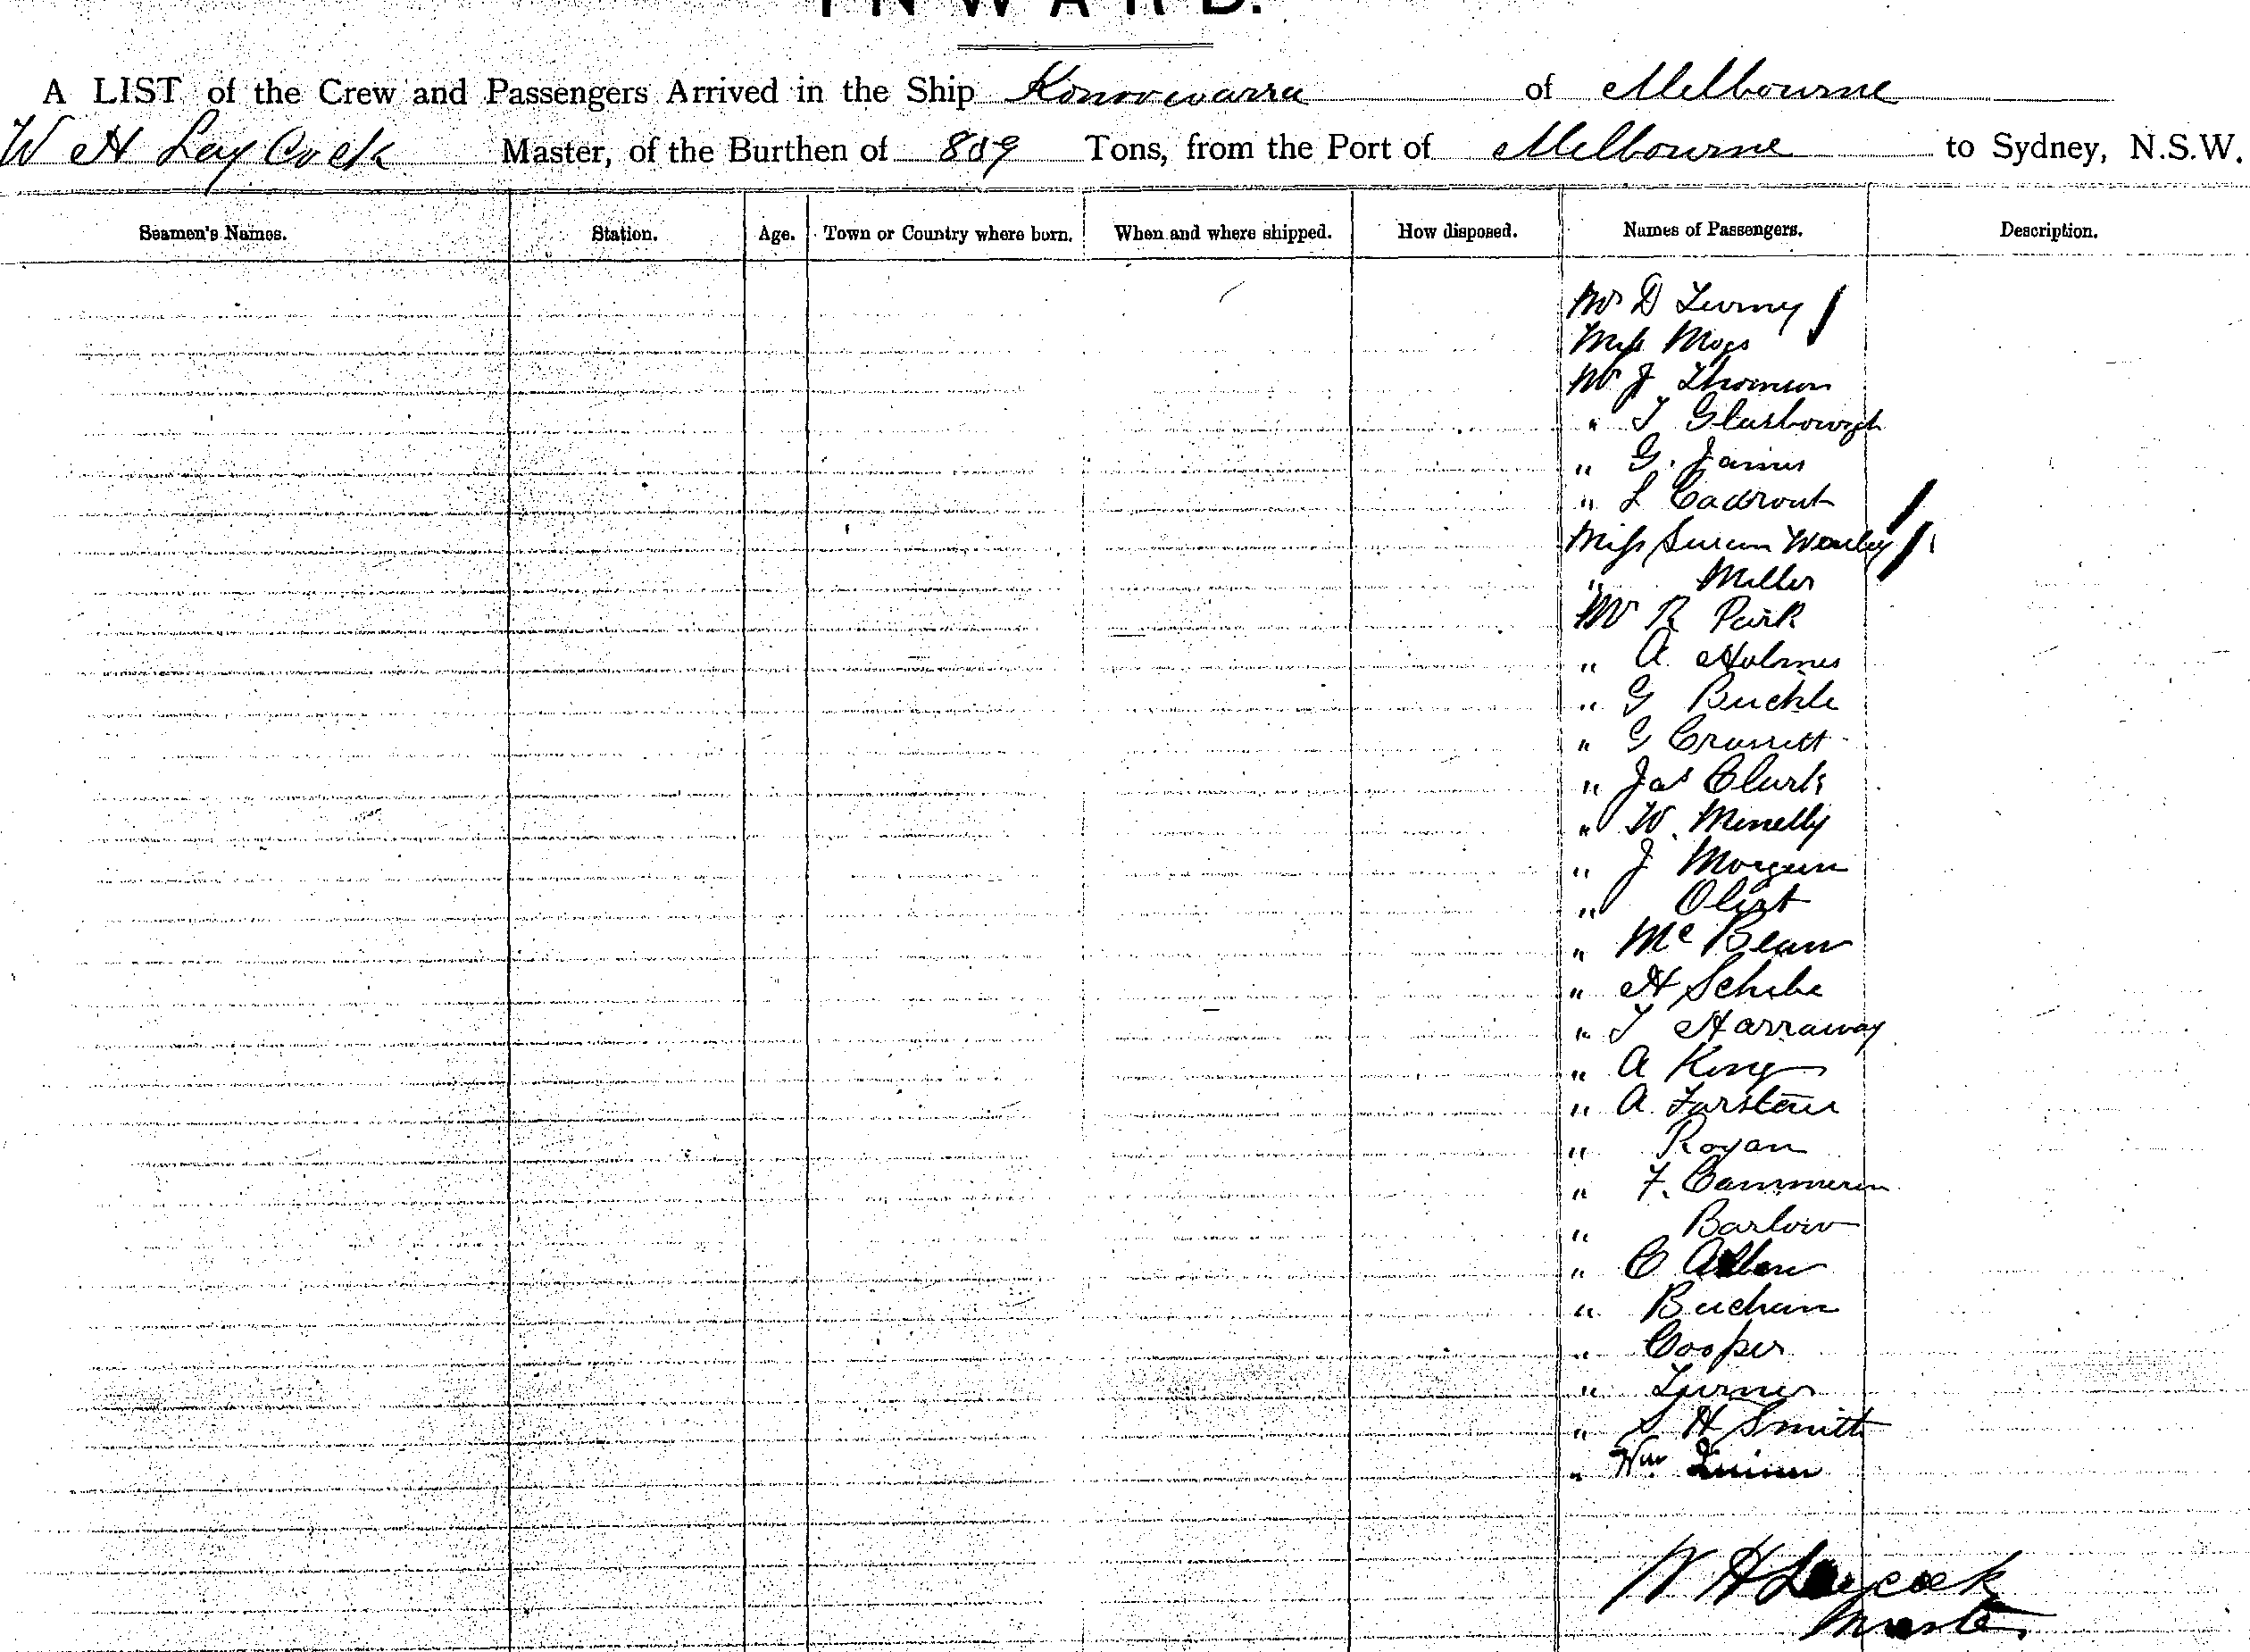 INWARD.
A LIST of the Crew and Passengers Arrived in the Ship Konoowarra of Melbourne
W H Lay Cock Master, of the Burthen of 809 Tons, from the Port of Melbourne to Sydney, N.S.W.
Seamen's Names. Station. Age. Town or Country where born. When and where shipped. How disposed. Names of Passengers. Description.
Mr D
Miss Moss
Mr J Thomson
" T
" G. James
" L
Miss Susan
" Miller
Mr R Park
" A. Holmes
" G Buckle
" G
" Jas Clark
" W. Minelly
" J Morgan
"
" Mc Bean
" H Schibe
" T Harraway
" A King
" A.
" Rogan
" F. Cammeron
" Barlow
" C Allen
" Buchan
" Cooper
" Turner
" S H Smith
" Wm
W H Laycock
Master